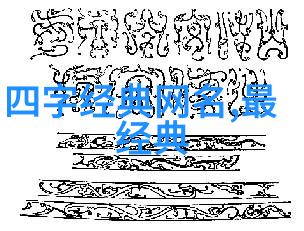 四字经典网名,最
经典